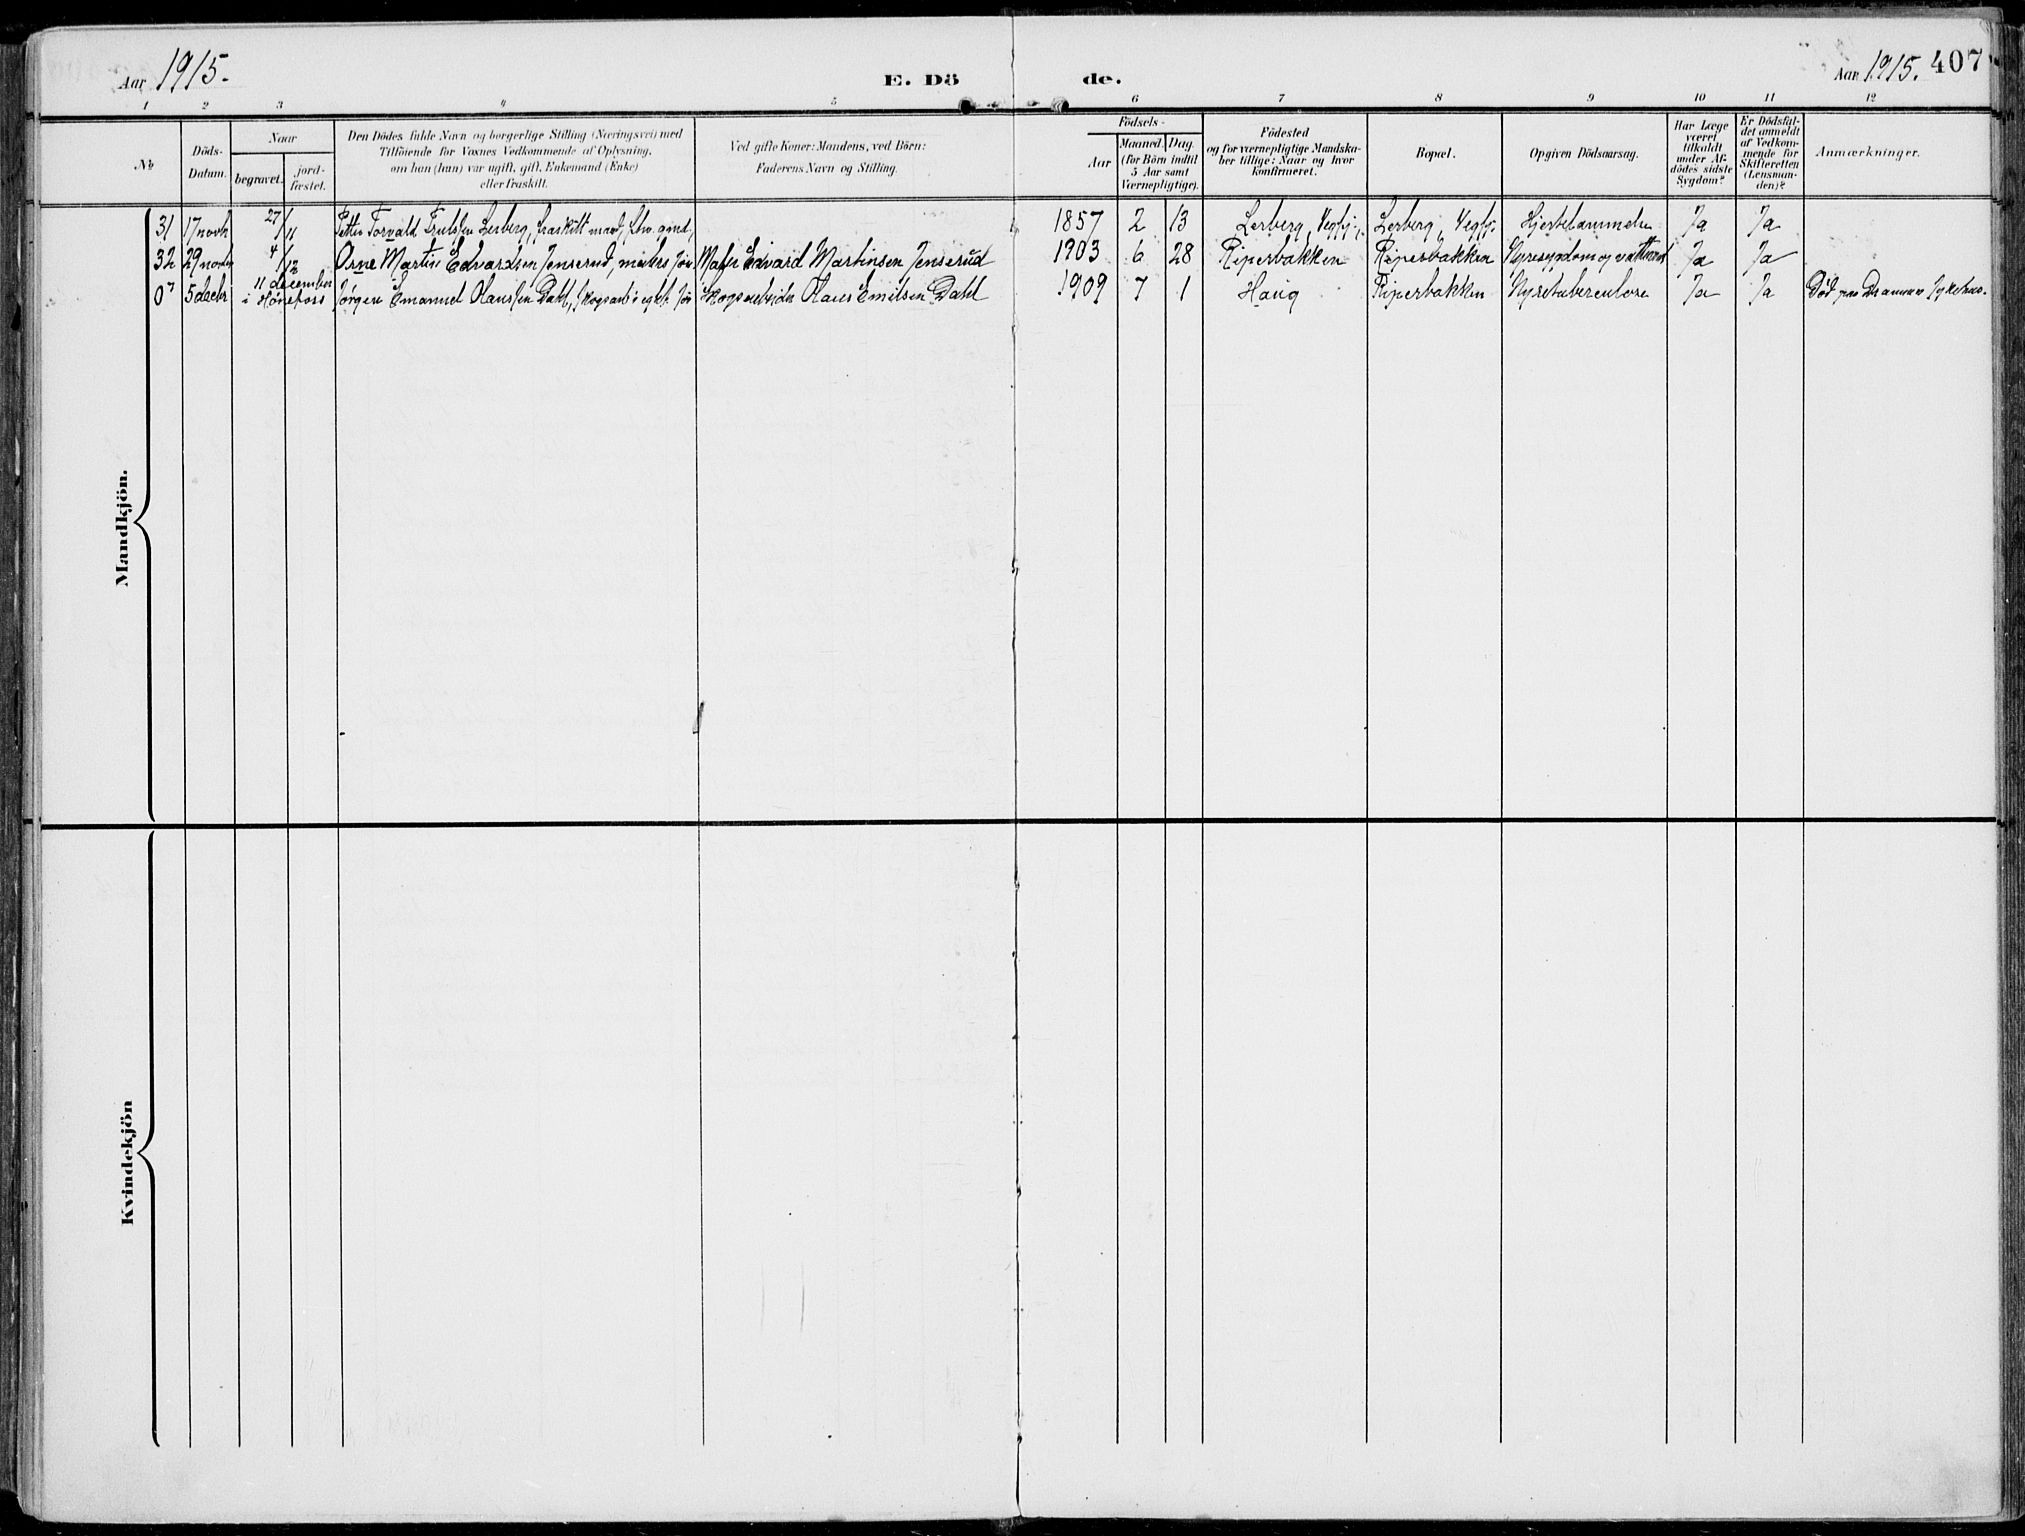 Aar 1915.
E. Dö de.
Aar 1915. 407
1 2 3 4 5 6 7 8 9 10 11 12
No
Döds-Datum.
Naar
begravet.
jord-fæstet.
Den Dödes fulde Navn og borgerlige Stilling (Næringsvei) med
Tilföiende for Voxnes Vedkommende af Oplysning,
om hun (han) var ugift, gift, Enkemand (Enke)
eller fraskilt.
Ved gifte Koner: Mandens, ved Börn:
Faderens Navn og Stilling.
Födsels-
Aar
Maaned. Dag.
(for Börn indtil
5 Aar samt
Værnepligtige).
Födested
og for værnepligtige Mandska-
ber tillige: Naar og hvor
konfirmeret.
Bopæl.
Opgiven Dödsaarsag.
Har Læge
været
tilkaldt
under Af-
dödes sidste
Sygdom?
Er Dödsfal-
det anmeldt
af Vedkom-
mende for
Skifteretten
(Lensman-
den)?
Anmærkninger.
Mandkjön.
31 17 novbr 27/11 Petter Torvald Trulssen Lerberg, fraskilt mand, 1857 2 13 Lerberg, Lerberg, Hjertelammelse Ja Ja
32 29 novbr 4/12 Arne Martin Edvardsen Jenserud, søn Edvard Martinsen Jenserud 1903 6 28 Riperbakken Riperbakken Nyresygdom og vattersot Ja Ja
0 5 decbr 11 december i Hønefoss Jørgen Emanuel Olaussen Dahl, skogsarb's søn Skogsarbeider Olaus Emilsen Dahl 1909 7 1 Haug Riperbakken Nyretuberculose Ja Ja Død paa Drammen sykehus.
Kvindekjön